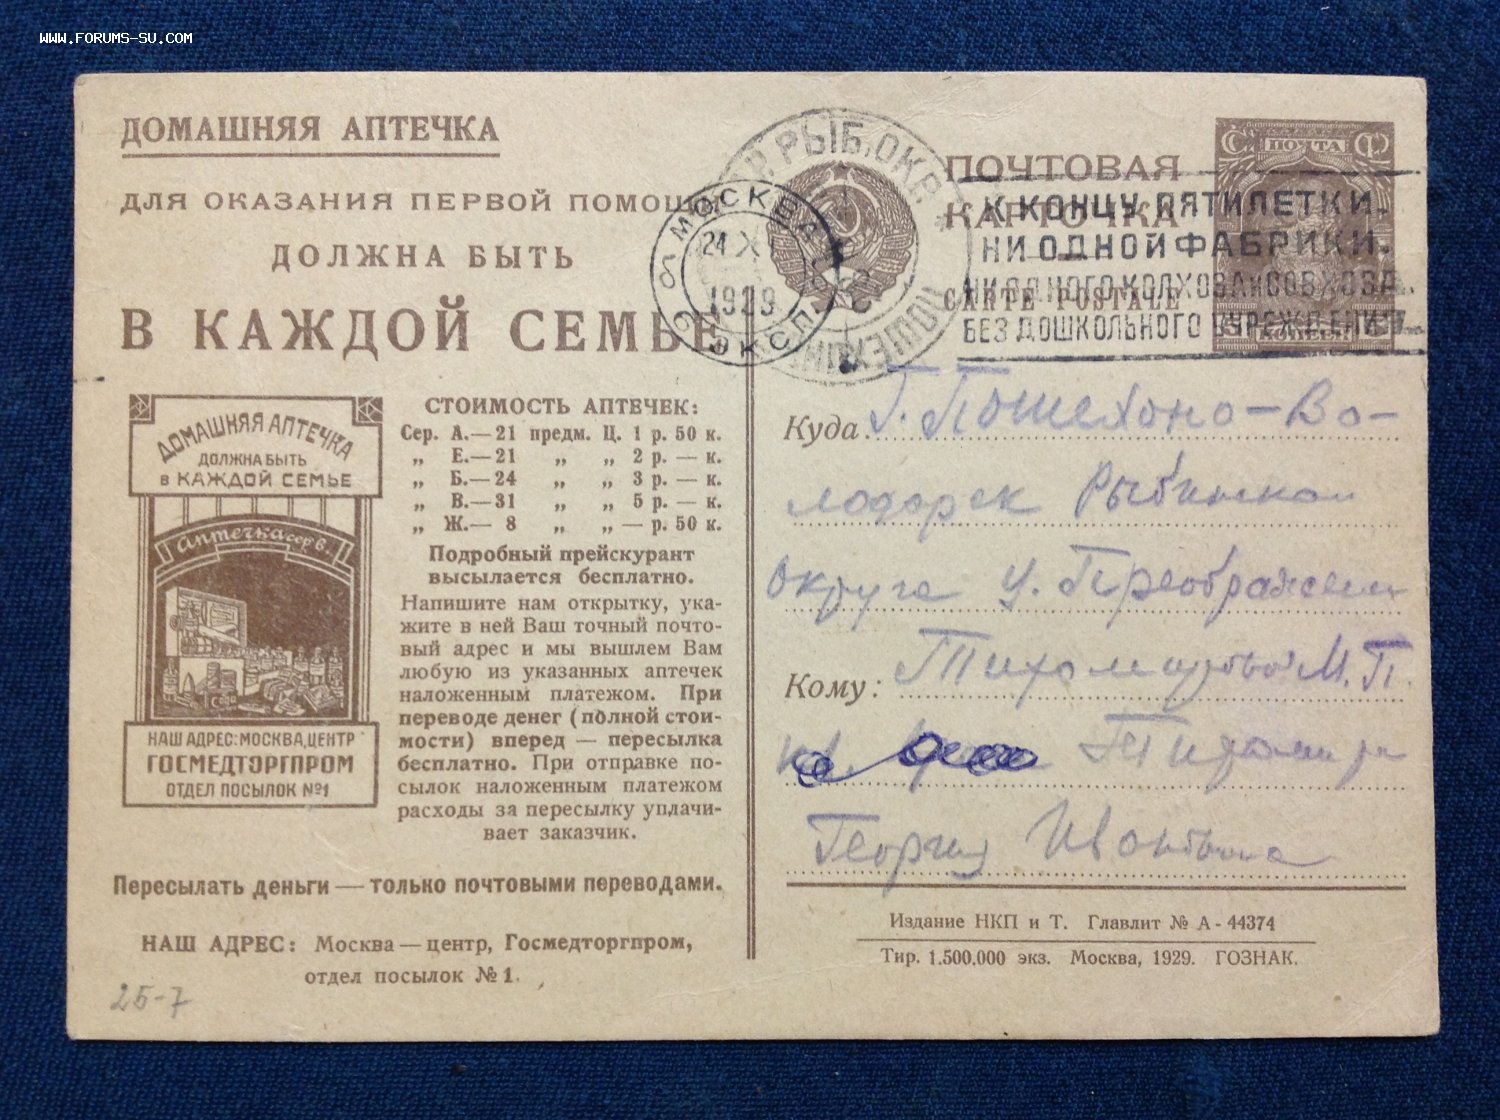 WWW.FORUMS-SU.COM
ДОМАШНЯЯ АПТЕЧКА
ДЛЯ ОКАЗАНИЯ ПЕРВОЙ ПОМОЩИ
ДОЛЖНА БЫТЬ
В КАЖДОЙ СЕМЬЕ
ДОМАШНЯЯ АПТЕЧКА
ДОЛЖНА БЫТЬ
В КАЖДОЙ СЕМЬЕ
Аптечка сер В.
НАШ АДРЕС: МОСКВА, ЦЕНТР
ГОСМЕДТОРГПРОМ
ОТДЕЛ ПОСЫЛОК №1
СТОИМОСТЬ АПТЕЧЕК:
Сер. А.—21 предм. Ц. 1 р. 50 к.
„ Е.—21 „ „ 2 р. — к.
„ Б.—24 „ „ 3 р. — к.
„ В.—31 „ „ 5 р. — к.
„ Ж.— 8 „ „ — р. 50 к.
Подробный прейскурант
высылается бесплатно.
Напишите нам открытку, ука-
жите в ней Ваш точный почто-
вый адрес и мы вышлем Вам
любую из указанных аптечек
наложенным платежом. При
переводе денег (полной стои-
мости) вперед — пересылка
бесплатно. При отправке по-
сылок наложенным платежом
расходы за пересылку уплачи-
вает заказчик.
Пересылать деньги — только почтовыми переводами.
НАШ АДРЕС: Москва — центр, Госмедторгпром,
отдел посылок № 1.
25-7
РЫБ. ОКР.
МОСКВА
24 X
1929
ЭКСП.
ПОЧТОВАЯ
КАРТОЧКА
CARTE POSTALE
ПОЧТА
К КОНЦУ ПЯТИЛЕТКИ.
НИ ОДНОЙ ФАБРИКИ.
НИ ОДНОГО КОЛХОЗА И СОВХОЗА
БЕЗ ДОШКОЛЬНОГО УЧРЕЖДЕНИЯ
Куда г. Пошехоно-Во-
лодарск Рыбинском
округа у. Преображенск
Кому: Тихомировой М. П.
Тихомир
Георгия Ивановича
Издание НКП и Т. Главлит № А - 44374
Тир. 1.500.000 экз. Москва, 1929. ГОЗНАК.